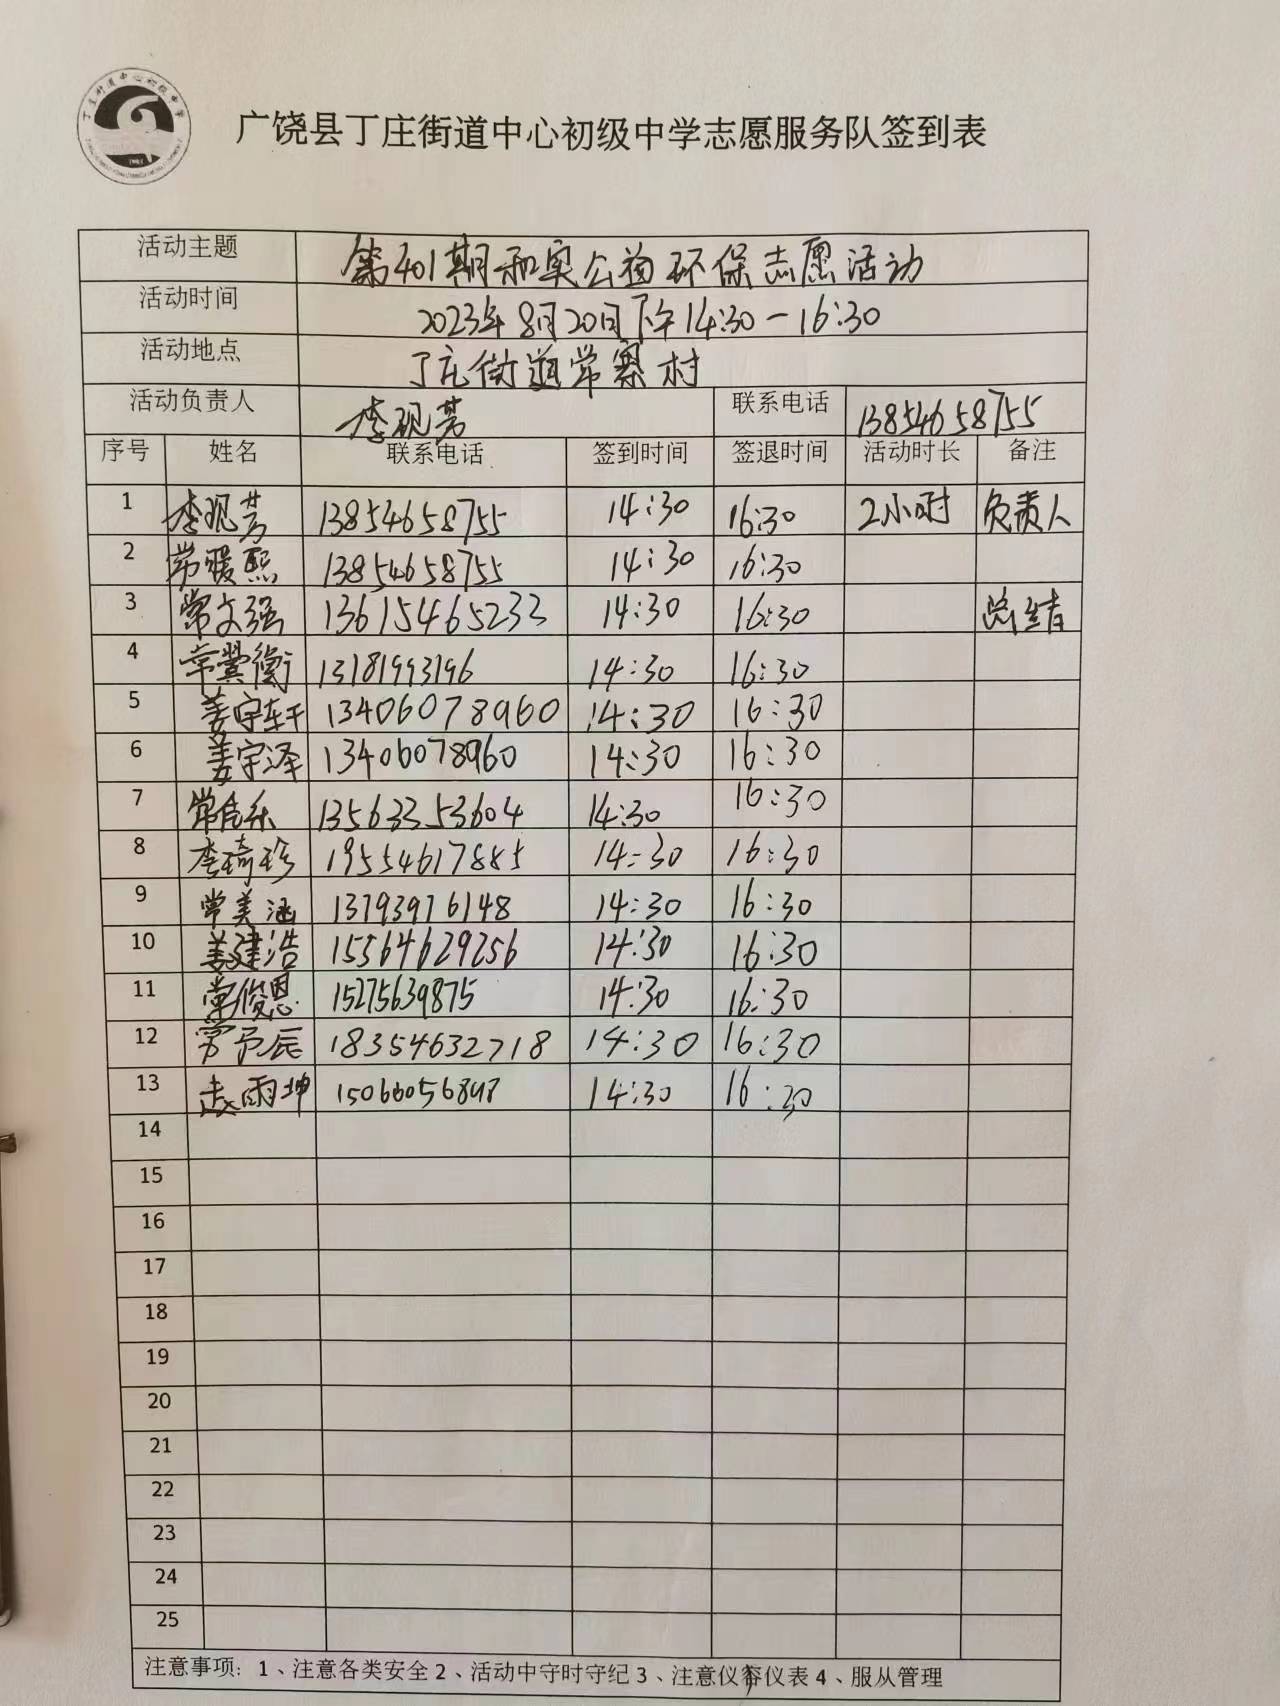 丁庄街道中心初级中学
广饶县丁庄街道中心初级中学志愿服务队签到表
活动主题 第401期和实公益环保志愿活动
活动时间 2023年8月20日下午14:30-16:30
活动地点 丁庄街道常寨村
活动负责人 李砚芳 联系电话 13854658755
序号 姓名 联系电话 签到时间 签退时间 活动时长 备注
1 李砚芳 13854658755 14:30 16:30 2小时 负责人
2 常暖熙 13854658755 14:30 16:30
3 常文强 13615465233 14:30 16:30 总结
4 常冀衡 13181993196 14:30 16:30
5 姜宇轩 13406078960 14:30 16:30
6 姜宇泽 13406078960 14:30 16:30
7 13563353604 14:30 16:30
8 李琦珍 19554617885 14:30 16:30
9 常美涵 13793976148 14:30 16:30
10 姜建浩 15564629256 14:30 16:30
11 常俊恩 15275639875 14:30 16:30
12 常予辰 18354632718 14:30 16:30
13 赵雨坤 14:30 16:30
14
15
16
17
18
19
20
21
22
23
24
25
注意事项：1、注意各类安全2、活动中守时守纪3、注意仪容仪表4、服从管理